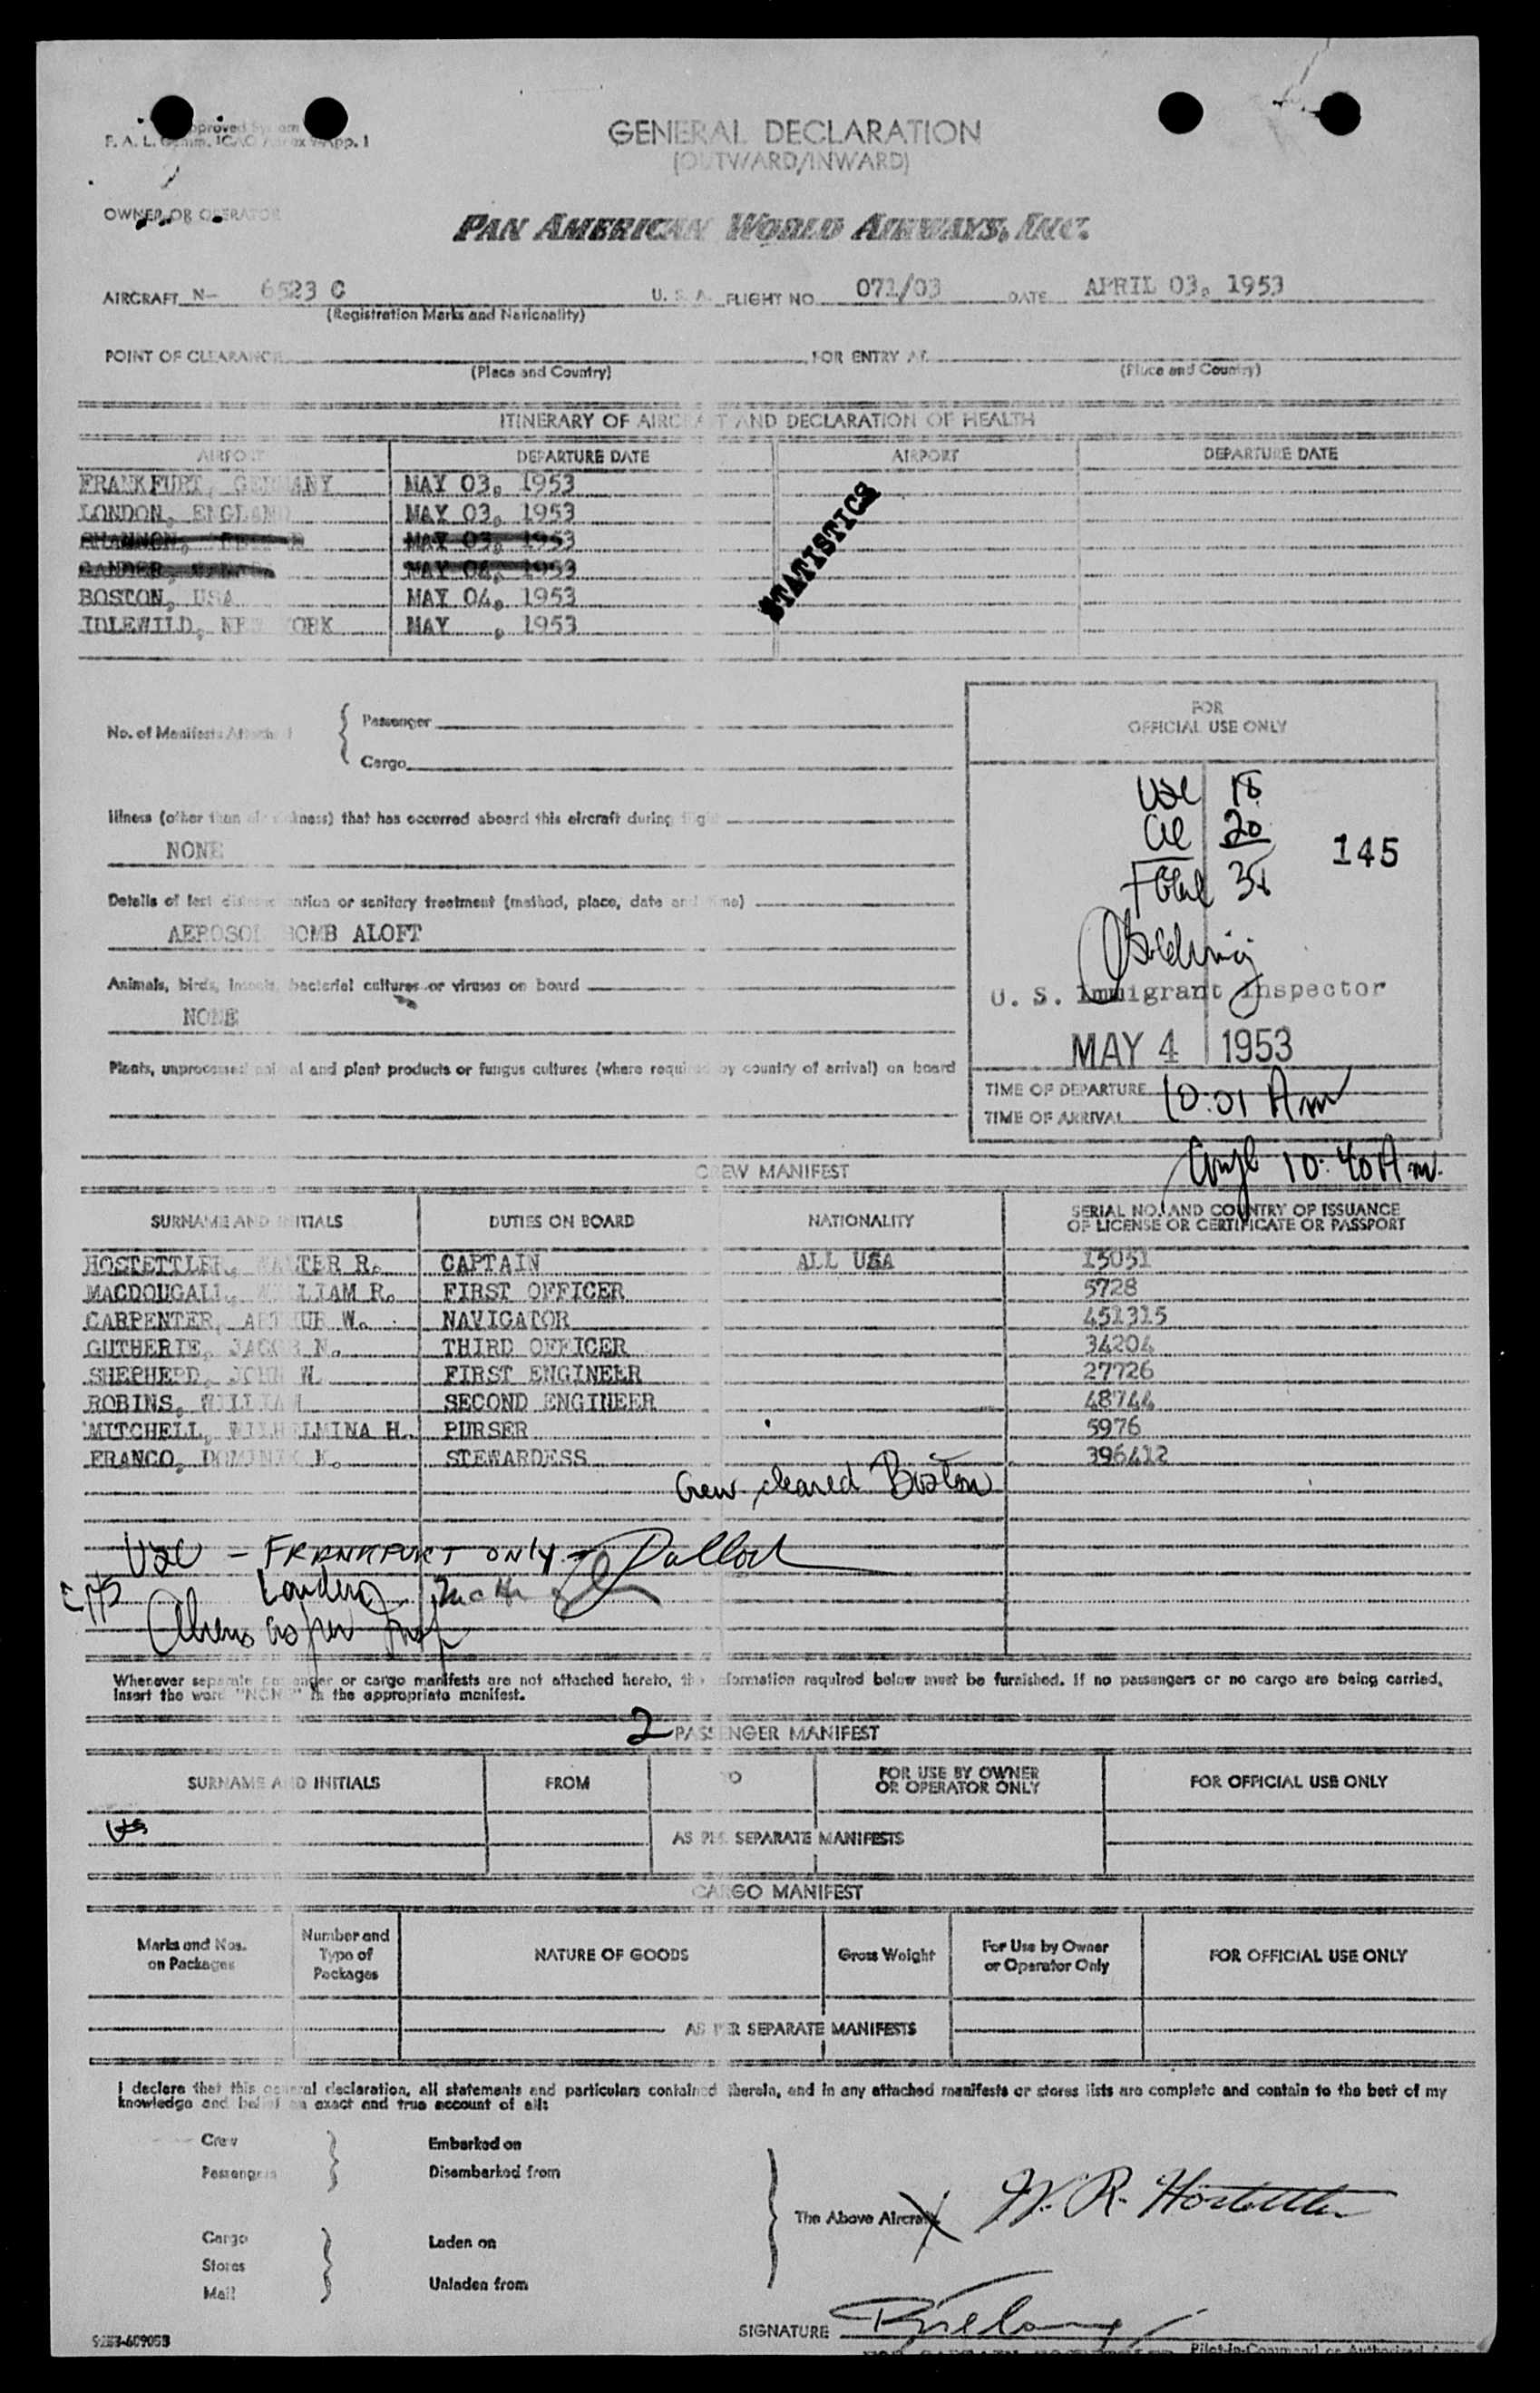 GENERAL DECLARATION
(OUTWARD/INWARD)
F. A. L. Comm. ICAO Annex 9 App. 1
OWNER OR OPERATOR
PAN AMERICAN WORLD AIRWAYS, INC.
AIRCRAFT N- 6523 C U. S. A. FLIGHT NO. 071/03 DATE APRIL 03, 1953
(Registration Marks and Nationality)
POINT OF CLEARANCE FOR ENTRY AT
(Place and Country) (Place and Country)
ITINERARY OF AIRCRAFT AND DECLARATION OF HEALTH
AIRPORT DEPARTURE DATE AIRPORT DEPARTURE DATE
FRANKFURT, GERMANY MAY 03, 1953
LONDON, ENGLAND MAY 03, 1953
SHANNON, MAY 03, 1953
GANDER, MAY 04, 1953
BOSTON, USA MAY 04, 1953
IDLEWILD, NEW YORK MAY , 1953
STATISTICS
No. of Manifests Attached { Passenger
Cargo
FOR
OFFICIAL USE ONLY
Illness (other than air sickness) that has occurred aboard this aircraft during flight
NONE
Details of last disinsectization or sanitary treatment (method, place, date and time)
AEROSOL BOMB ALOFT
Animals, birds, insects, bacterial cultures or viruses on board
NONE
Plants, unprocessed animal and plant products or fungus cultures (where required by country of arrival) on board
USC 18
Al 20
Total 38
145
U. S. Immigrant Inspector
MAY 4 1953
TIME OF DEPARTURE 10:01 AM
TIME OF ARRIVAL
10:40 AM.
CREW MANIFEST
SURNAME AND INITIALS DUTIES ON BOARD NATIONALITY SERIAL NO. AND COUNTRY OF ISSUANCE
OF LICENSE OR CERTIFICATE OR PASSPORT
HOSTETTLER, WALTER R. CAPTAIN ALL USA 15051
MACDOUGALL, WILLIAM R. FIRST OFFICER 5728
CARPENTER, ARTHUR W. NAVIGATOR 451315
GUTHERIE, JACOB N. THIRD OFFICER 34204
SHEPHERD, JOHN W. FIRST ENGINEER 27726
ROBINS, WILLIAM SECOND ENGINEER 48744
MITCHELL, WILHELMINA H. PURSER 5976
FRANCO, DOMINIK K. STEWARDESS 396412
Crew cleared Boston
USC - FRANKFURT ONLY -
London
Aliens as per
Whenever separate passenger or cargo manifests are not attached hereto, the information required below must be furnished. If no passengers or no cargo are being carried,
insert the word "NONE" in the appropriate manifest.
2 PASSENGER MANIFEST
SURNAME AND INITIALS FROM TO FOR USE BY OWNER
OR OPERATOR ONLY FOR OFFICIAL USE ONLY
AS PER SEPARATE MANIFESTS
CARGO MANIFEST
Marks and Nos.
on Packages Number and
Type of
Packages NATURE OF GOODS Gross Weight For Use by Owner
or Operator Only FOR OFFICIAL USE ONLY
AS PER SEPARATE MANIFESTS
I declare that this general declaration, all statements and particulars contained therein, and in any attached manifests or stores lists are complete and contain to the best of my
knowledge and belief an exact and true account of all:
Crew Embarked on
Passengers Disembarked from
The Above Aircraft W. R. Hostettler
Cargo Laden on
Stores
Mail Unladen from
SIGNATURE
Pilot-in-Command or Authorized